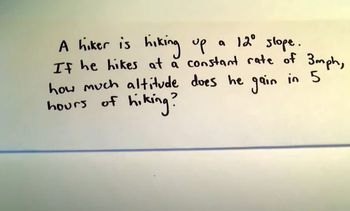 A hiker is hiking up a 12° slope.
If he hikes at a constant rate of 3mph,
how much altitude does he gain in 5
hours of hiking?